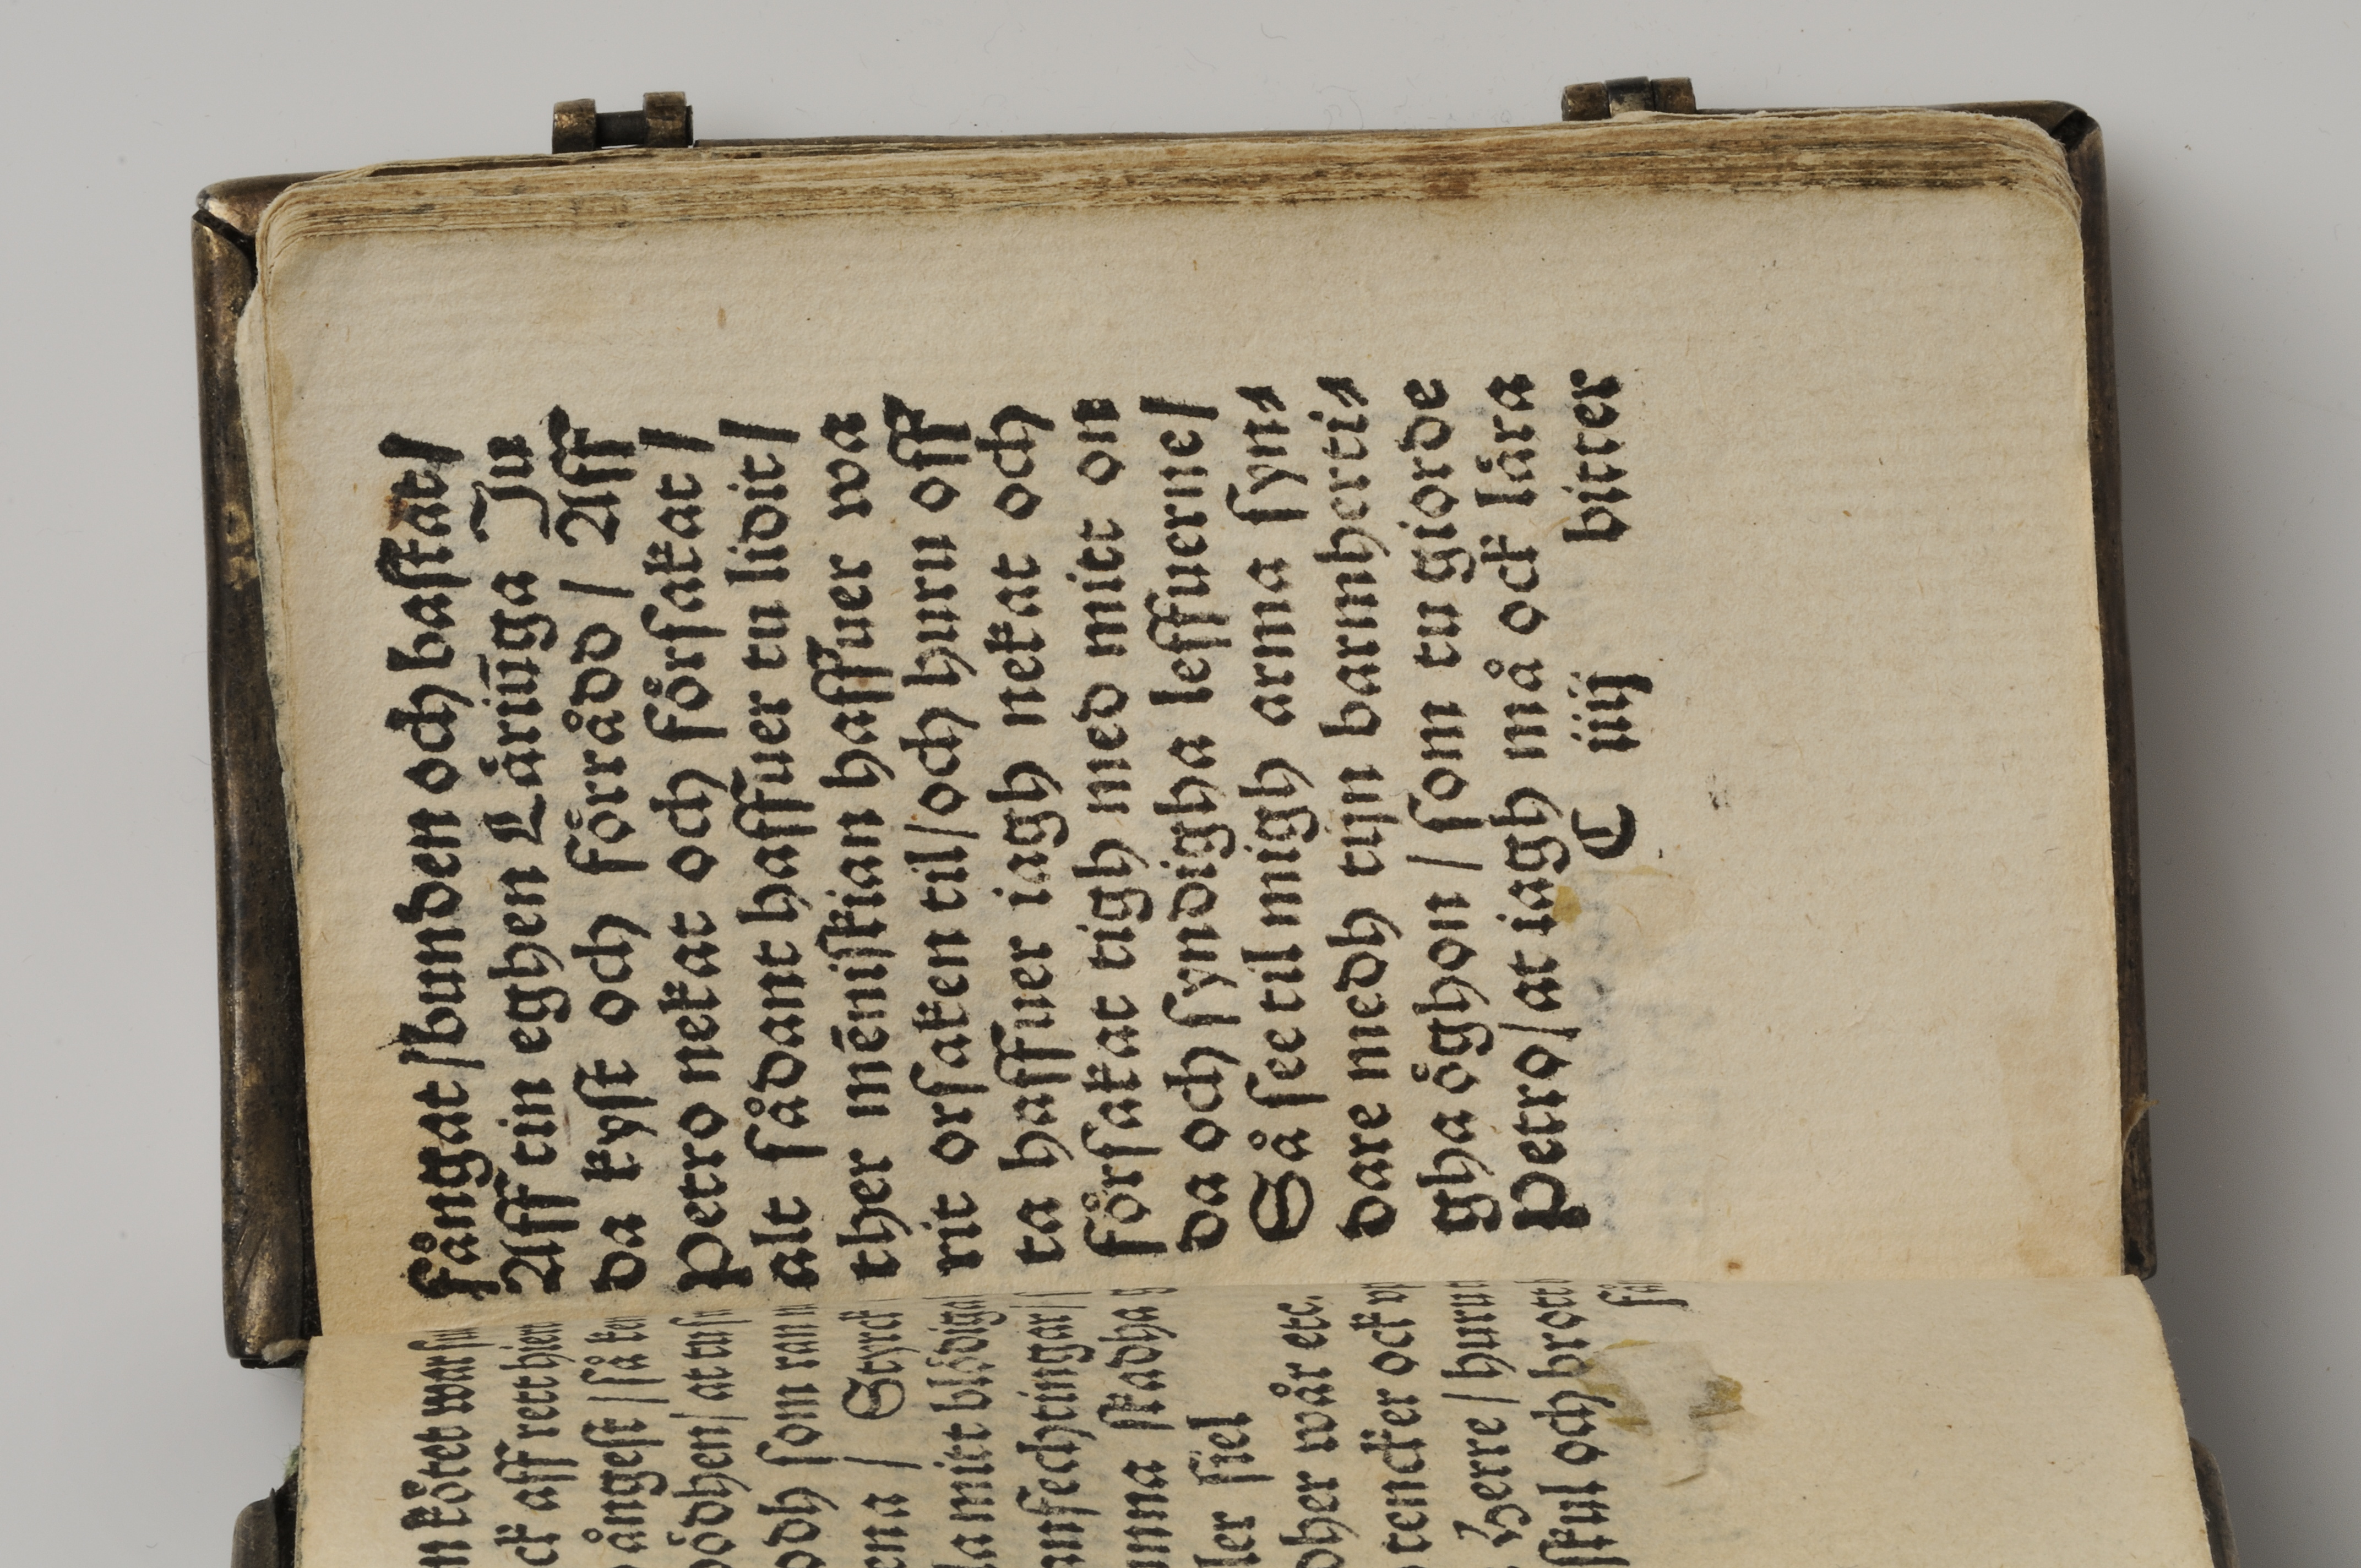 m kötet war
ck aff rett
ångest / så
ödhen / at tu
odh som ran
ena / Styrck
la mitt blödiga
anfechtingar /
unna skadha
ler siel
dher wår etc.
tencker ock
Herre / huru
skul och brott
få
fångat / bunden och bastat /
Aff tin eghen Läriūga Ju
da kyst och förrådd / Aff
Petro nekat och försakat /
alt sådant haffuer tu lidit /
ther mēniskian haffuer wa
rit orsaken til / och huru off
ta haffuer iagh nekat och
försakat tigh med mitt on
da och syndigha leffuerne /
Så see til migh arma syn⸗
dare medh tijn barmherti⸗
gha öghon / som tu giorde
Petro / at iagh må ock lära
C iiij bitter